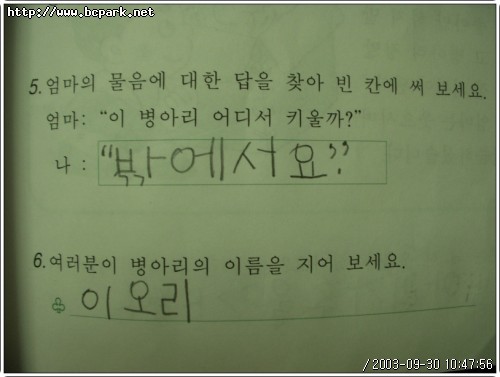 http://www.bcpark.net
5.엄마의 물음에 대한 답을 찾아 빈 칸에 써 보세요.
엄마: "이 병아리 어디서 키울까?"
나 : "밖에서요."
6.여러분이 병아리의 이름을 지어 보세요.
이오리
/ 2003-09-30 10:47:56